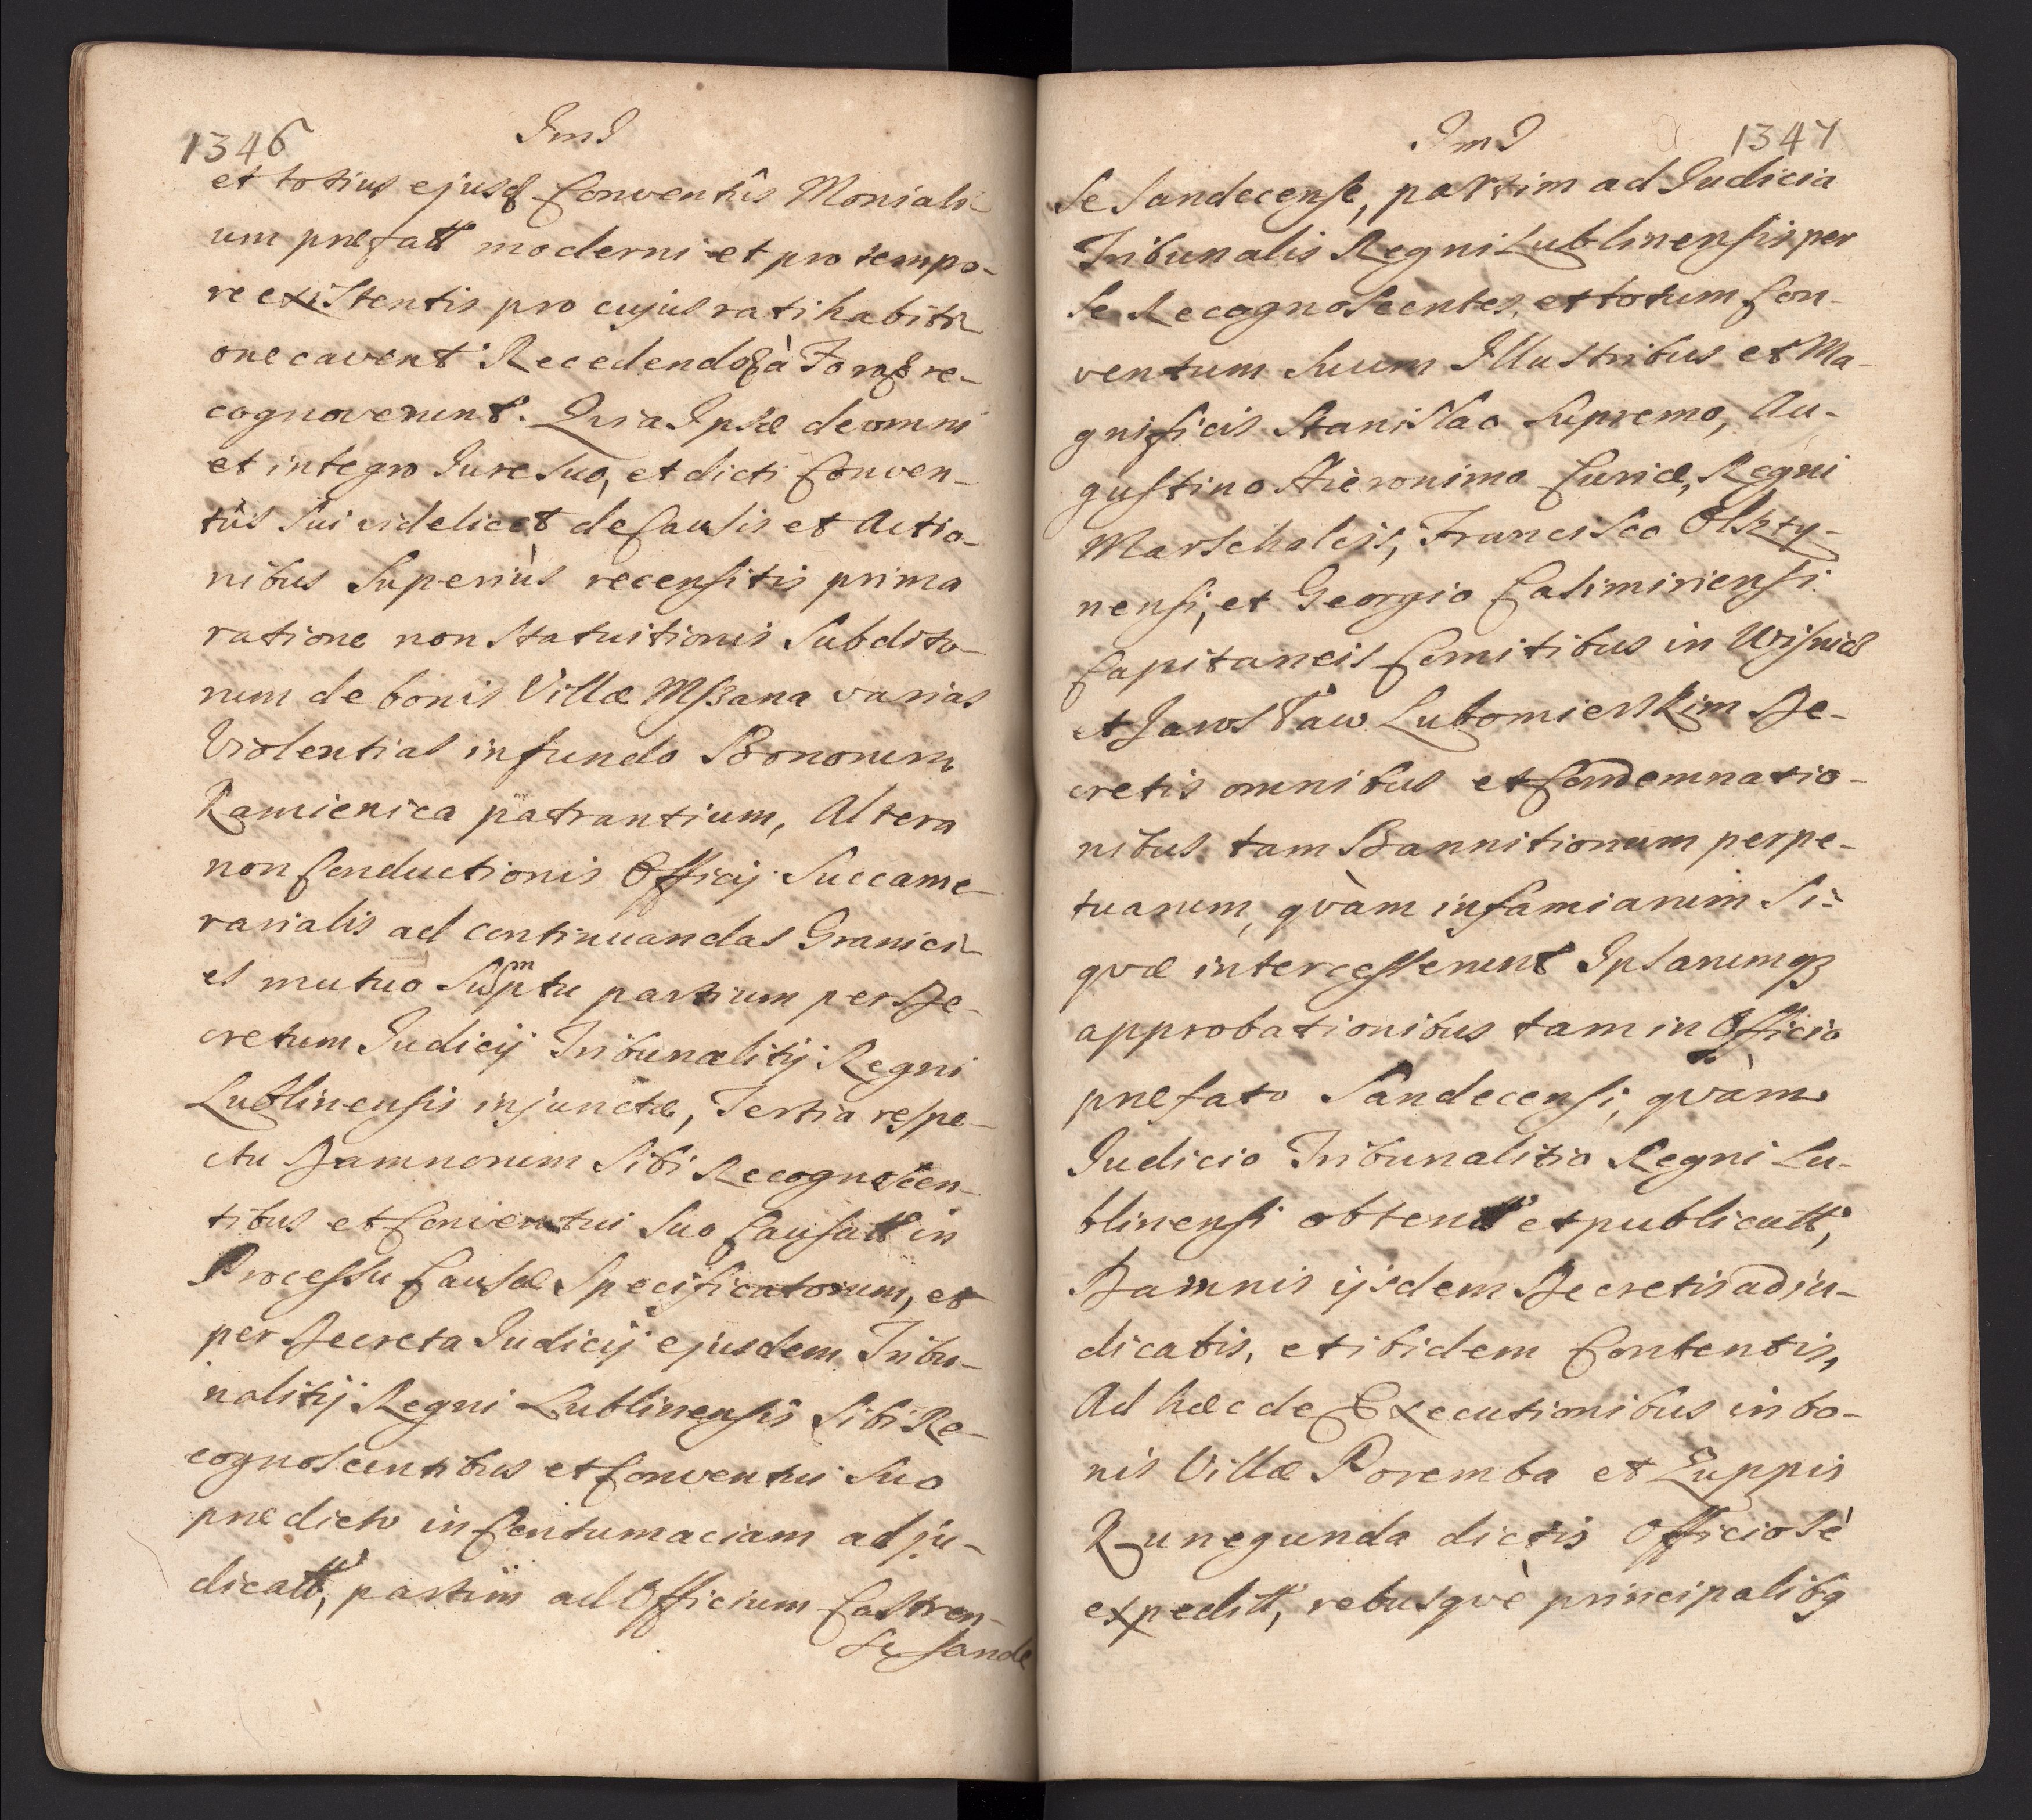 1346
JmJ
et totius ejusd Conventûs Moniali-
um præfatt moderni et pro tempo-
re existentis pro cujus ratihabiti-
one cavent Recedendoq à Forq re-
cognoverunt. Quia Ipsæ de omni
et integro Jure suo, et dicti Conven-
tûs sui videlicet de Causis et Actio-
nibus superiùs recensitis prima
ratione non statuitionis Subdito-
rum de bonis Villæ Mszana varias
Violentias in fundo Bonorum
Kamienica patrantium, Altera
non Conductionis Officij Succame-
rarialis ad continuandas Granici-
es mutuo Sumptu partium per De-
cretum Judicij Tribunalitij Regni
Lublinensis injunctæ, Tertia respe-
ctu Damnorum sibi Recognoscen-
tibus et Conventui suo Causatt in
Processu Causæ Specificatorum, et
per Decreta Judicij ejusdem Tribu-
nalitij Regni Lublinensis sibi Re-
cognoscentibus et Conventui suo
prædicto in Contumaciam adju-
dicatt, partim ad Officium Castren-
se Sande
JmJ
1347
se Sandecense, partim ad Judicia
Tribunalis Regni Lublinensis per
se Recognoscentes, et totum Con-
ventum suum Illustribus et Ma-
gnificis Stanislao Supremo, Au-
gustino Hieronimo Curiæ, Regni
Marschalcis, Francisco Olszty-
nensi, et Georgio Casimiriensi
Capitaneis Comitibus in Wisnicz
et Jarosław Lubomierskim De-
cretis omnibus et Condemnatio-
nibus tam Bannitionum perpe-
tuarum, qvàm infamiarum Si-
qvæ intercesserunt Ipsarumqz
approbationibus tam in Officio
præfato Sandecensi, qvàm
Judicio Tribunalitio Regni Lu-
blinensi obtentt et publicatt,
Damnis ijsdem Decretis adju-
dicatis, et ibidem Contentis,
Ad hæc de Executionibus in bo-
nis Villæ Poremba et Zuppis
Kunegunda dictis Officiosè
expeditt, rebusqvè principalibq